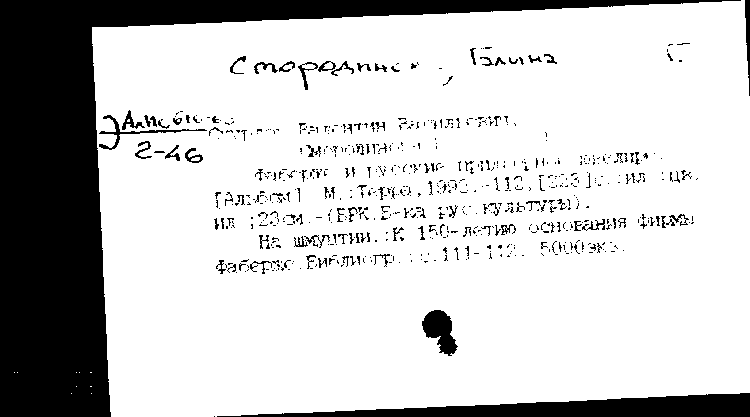 Смородинск, Галина Г.
Э АлНС 616-63
2-46
Валентин Васильевич,
Смородинова Г
Фаберже и русские придворные ювелиры
[Альбом] М.:Терра,1992.-112,[223]с.:ил :цв.
ил ;23см.-(БРК.Б-ка рус.культуры).
На шмуцтит.:К 150-летию основания фирмы
Фаберже.Библиогр.:с.111-112. 5000экз.